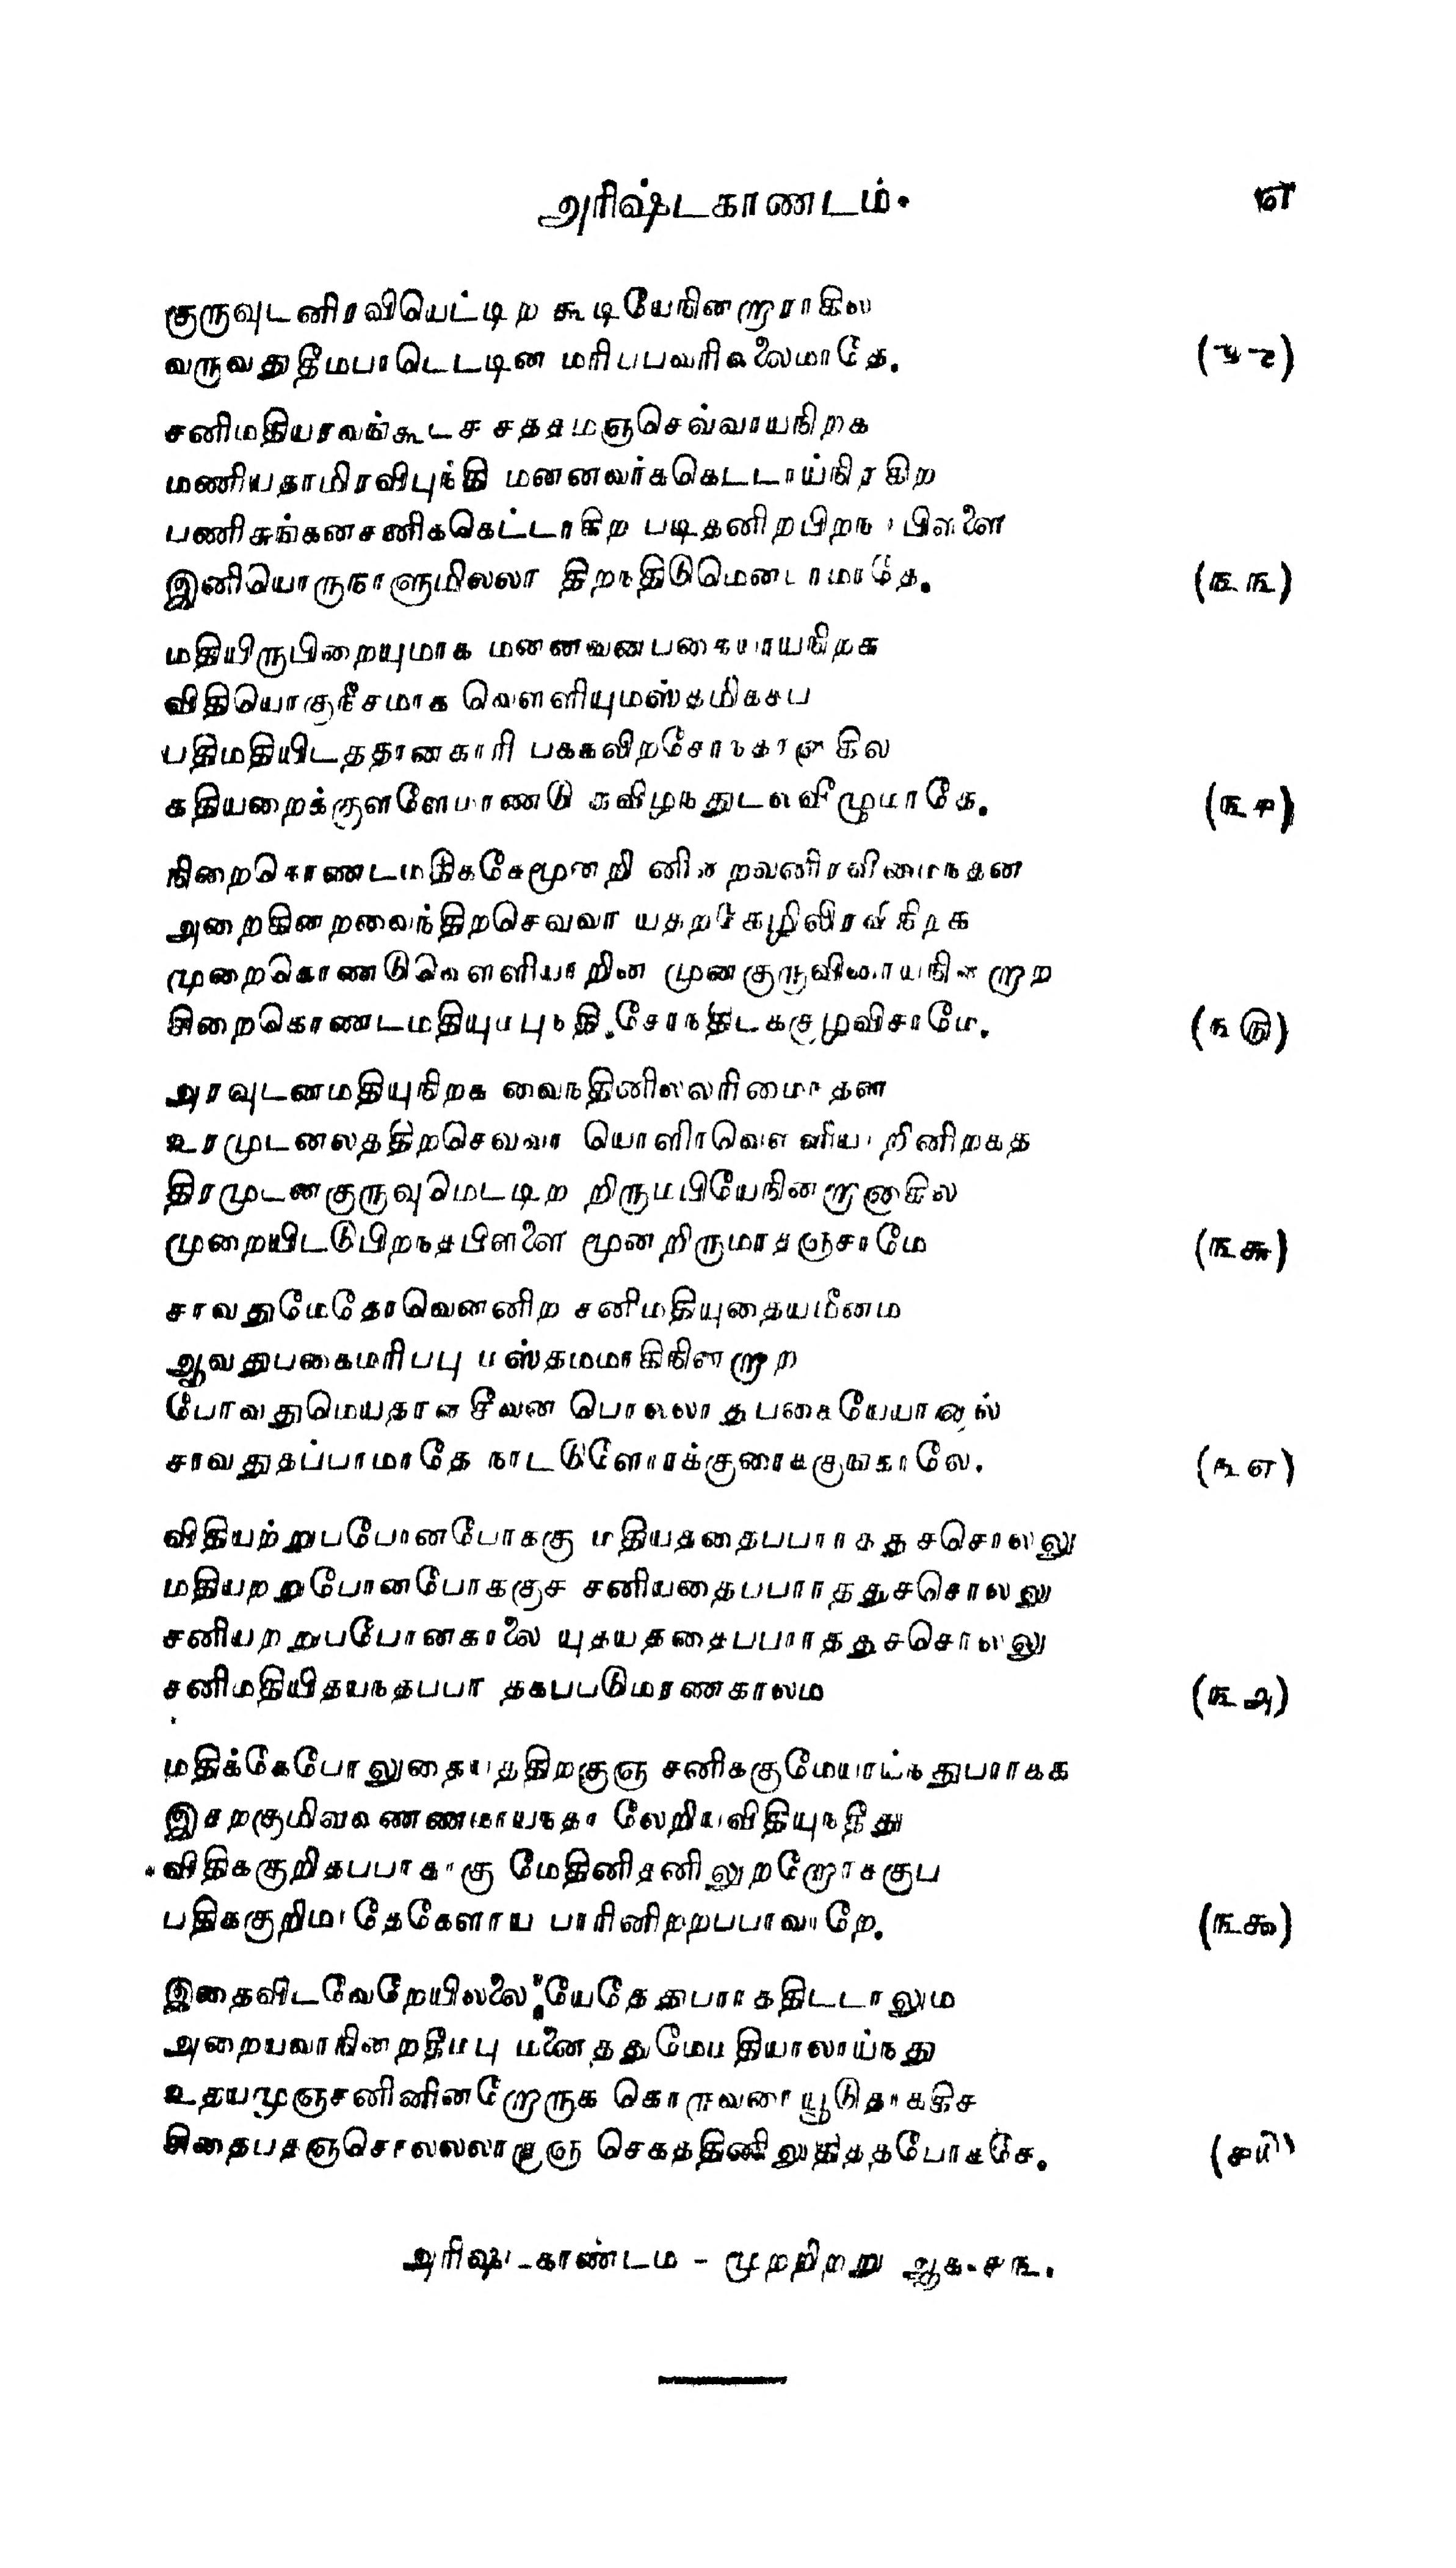 அரிஷ்டகாணடம். ௭
குருவுடனிரவியெட்டிற கூடியேநினறாராகில
வருவதுதீமபாடெடடின மரிபபவரிலலைமாதே. (௩௨)
சனிமதியரவங்கூடச சததமஞசெவ்வாயநிறக
மணியதாமிரவிபுந்தி மனனவர்ககெடடாய்நிரகிற
பணிசுங்கனசனிககெட்டாகிற படிதனிறபிறந பிளளை
இனியொருநாளுமிலலா திறநதிடுமெனடாமாதே. (௩௩)
மதியிருபிறையுமாக மனனவனபகையாயநிறக
விதியொகுநீசமாக வெளளியுமஸ்தமிகசப
பதிமதியிடததானகாரி பககலிறசோநதானாகில
கதியறைக்குளளேமாணடு கவிழநதுடலவீழுமாதே. (௩௪)
நிறைகொணடமதிககேமூனறி னினறவனிரவிமைநதன
அறைகினறவைந்திறசெவவா யதறகேழிலிரவிநிறக
முறைகொணடுவெளளியாறின முனகுருவினாயநினறாற
சிறைகொணடமதியுமபுநதி சோநதிடககுழவிசாமே. (௩௫)
அரவுடனமதியுநிறக வைநதினிலலரிமைநதன
உரமுடனலததிறசெவவா யொளிாவெளளியாறினிறகத
திரமுடனகுருவுமெடடிற றிருமபியேநினறானாகில
முறையிடடுபிறநதபிளளை மூனறிருமாதஞசாமே (௩௬)
சாவதுமேதோவெனனிற சனிமதியுதையமீனம
ஆவதுபகைமரிபபு மஸ்தமமாகிநினறாற
போவதுமெயதானசீவன பொலலாதபகையேயானால்
சாவதுதப்பாமாதே நாடடுளோாக்குரைககுஙகாலே. (௩௭)
விதியற்றுபபோனபோககு மதியததைபபாாததுசசொலலு
மதியறறுபோனபோககுச சனியதைபபாாததுசசொலலு
சனியறறுபபோனகாலை யுதயததைபபாாததுசசொலலு
சனிமதியிதயநதபபா தகபபடுமரணகாலம (௩௮)
மதிக்கேபோலுதையததிறகுஞ சனிககுமேயாய்நதுபாாகக
இசறகுமிவவணணமாயநதா லேறியவிதியுநநீது
விதிககுறிதபபாகாகு மேதினிதனிலுறறோாசகுப
பதிககுறிமாதேகேளாய பாரினிறறபபாவாறே. (௩௯)
இதைவிடவேறேயிலலை யேதேதுபாாகதிடடாலும
அறையவாநிறைதீமபு மனைததுமேமதியாலாய்நது
உதயமுஞசனினினறோருக கொருவரையூடுதாககிச
சிதைபதஞசொலலலாகுஞ செகததினிலுதிததபோககே. (௪௰)
அரிஷ்டகாண்டம - முறறிறறு ஆக-௪௩.